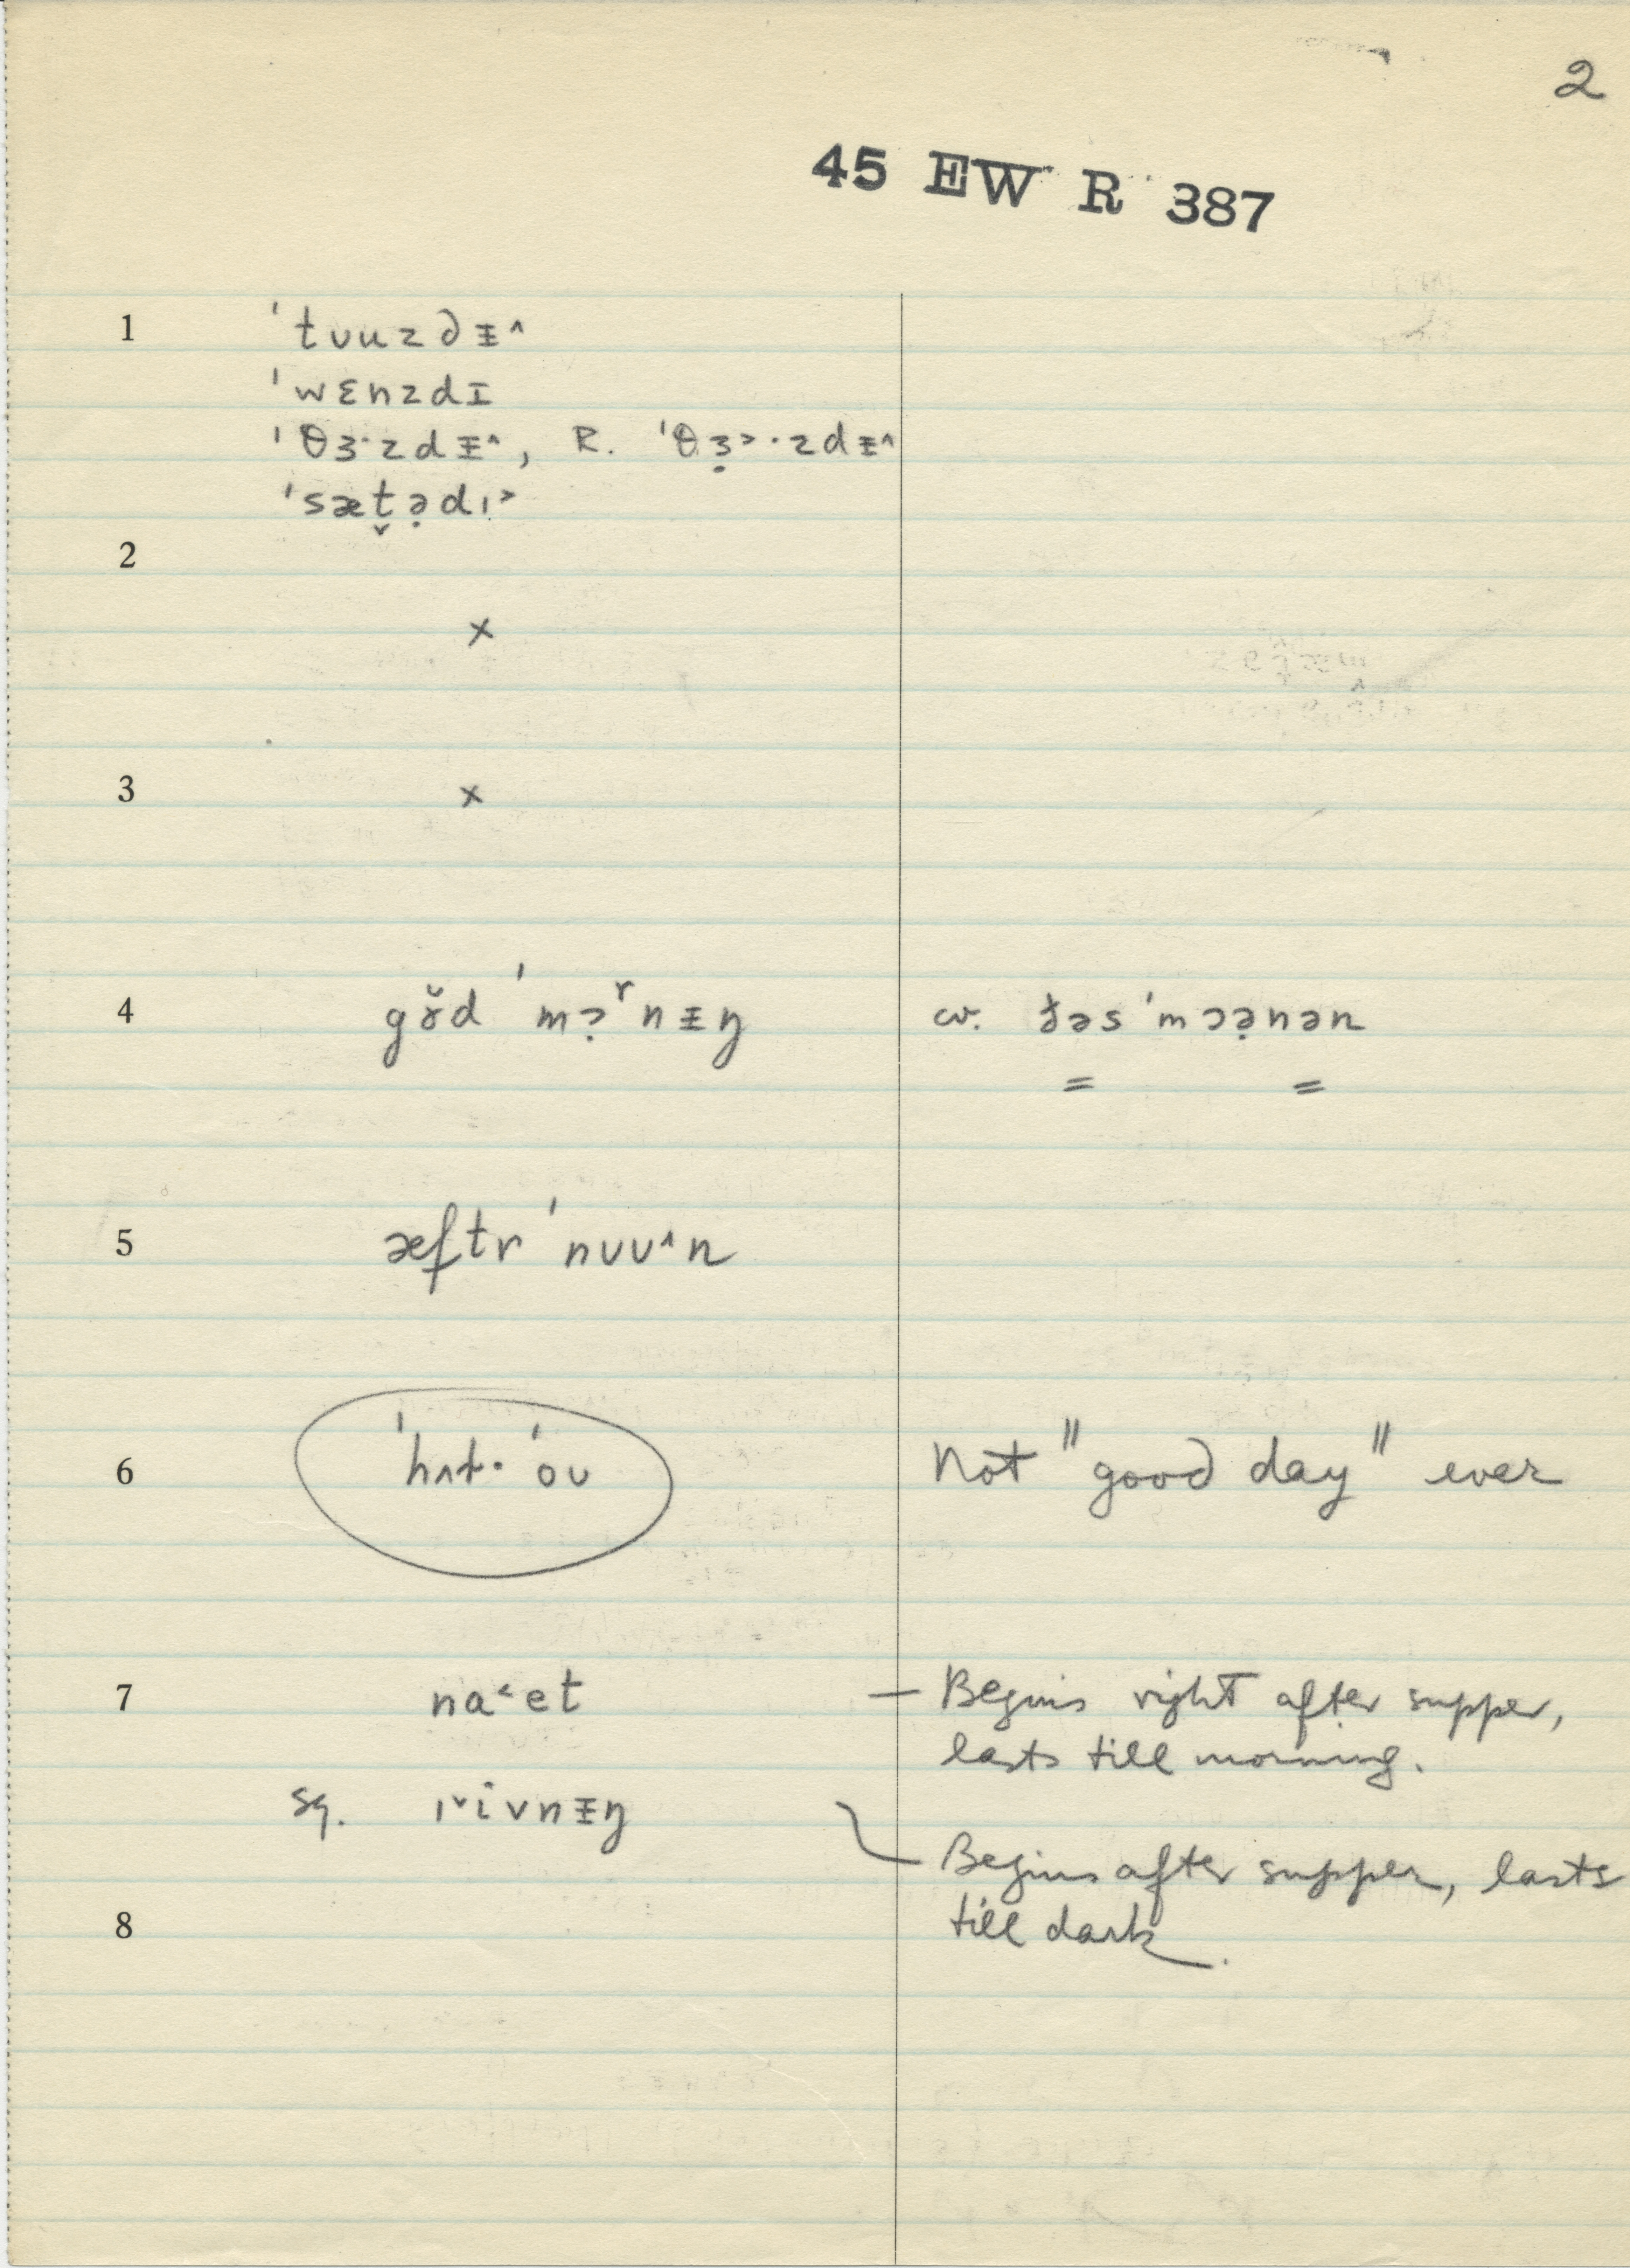 2
45 EW R 387
1 ˈtʊuzdɪ̵^
ˈwɛnzdɪ
ˈθɜ·zdɪ̵^, R. ˈθɜ̣˃·zdɪ̵^
ˈsæt̬ə̣dɪ˃
2
×
3 ×
4 gɤ̆d ˈmɔ̣ʳnɪ̵ŋ cv. ðəs ˈmɔə̣nən
= =
5 æftr ˈnʊʊ^n
6 ˈhʌt· ˈoʊ Not "good day" ever
7 na˂et — Begins right after supper,
lasts till morning.
sq. ɪˇivnɪ̵ŋ
Begins after supper, lasts
8 till dark.